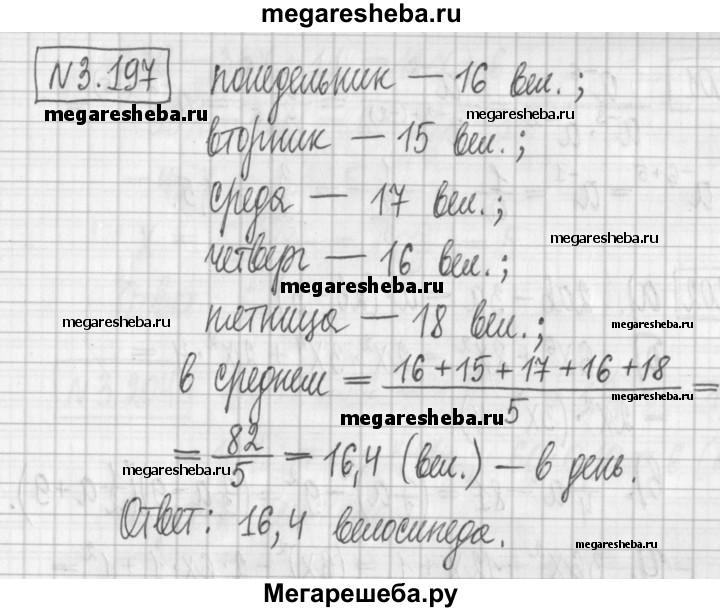 megaresheba.ru
№3.197 понедельник — 16 вел.;
megaresheba.ru
megaresheba.ru
вторник — 15 вел.;
среда — 17 вел.;
megaresheba.ru
четверг — 16 вел.;
megaresheba.ru
megaresheba.ru
пятница — 18 вел.;
megaresheba.ru
в среднем = (16 + 15 + 17 + 16 + 18)/5 =
megaresheba.ru
megaresheba.ru
= 82/5 = 16,4 (вел.) — в день.
megaresheba.ru
Ответ: 16,4 велосипеда.
megaresheba.ru
Мегарешеба.ру